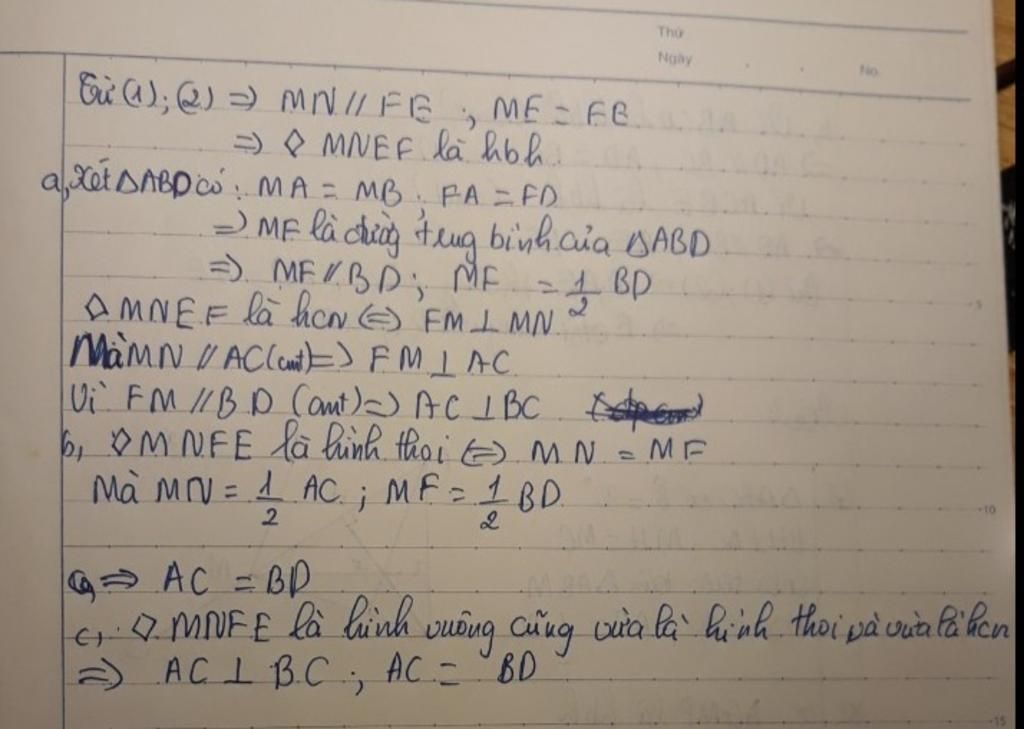 Thứ
Ngày
No.
Từ (1); (2) => MN // FE ; ME = FE
=> ◇ MNEF là hbh
a, Xét △ABD có: MA = MB ; FA = FD
=> MF là đường trung bình của △ABD
=> MF // BD ; MF = 1/2 BD
◇ MNEF là hcn <=> FM ⊥ MN
Mà MN // AC (cmt) => FM ⊥ AC
Vì FM // BD (cmt) => AC ⊥ BC
b, ◇ MNFE là hình thoi <=> MN = MF
Mà MN = 1/2 AC ; MF = 1/2 BD
=> AC = BD
c, ◇ MNFE là hình vuông cũng vừa là hình thoi và vừa là hcn
=> AC ⊥ BC ; AC = BD
5
10
15